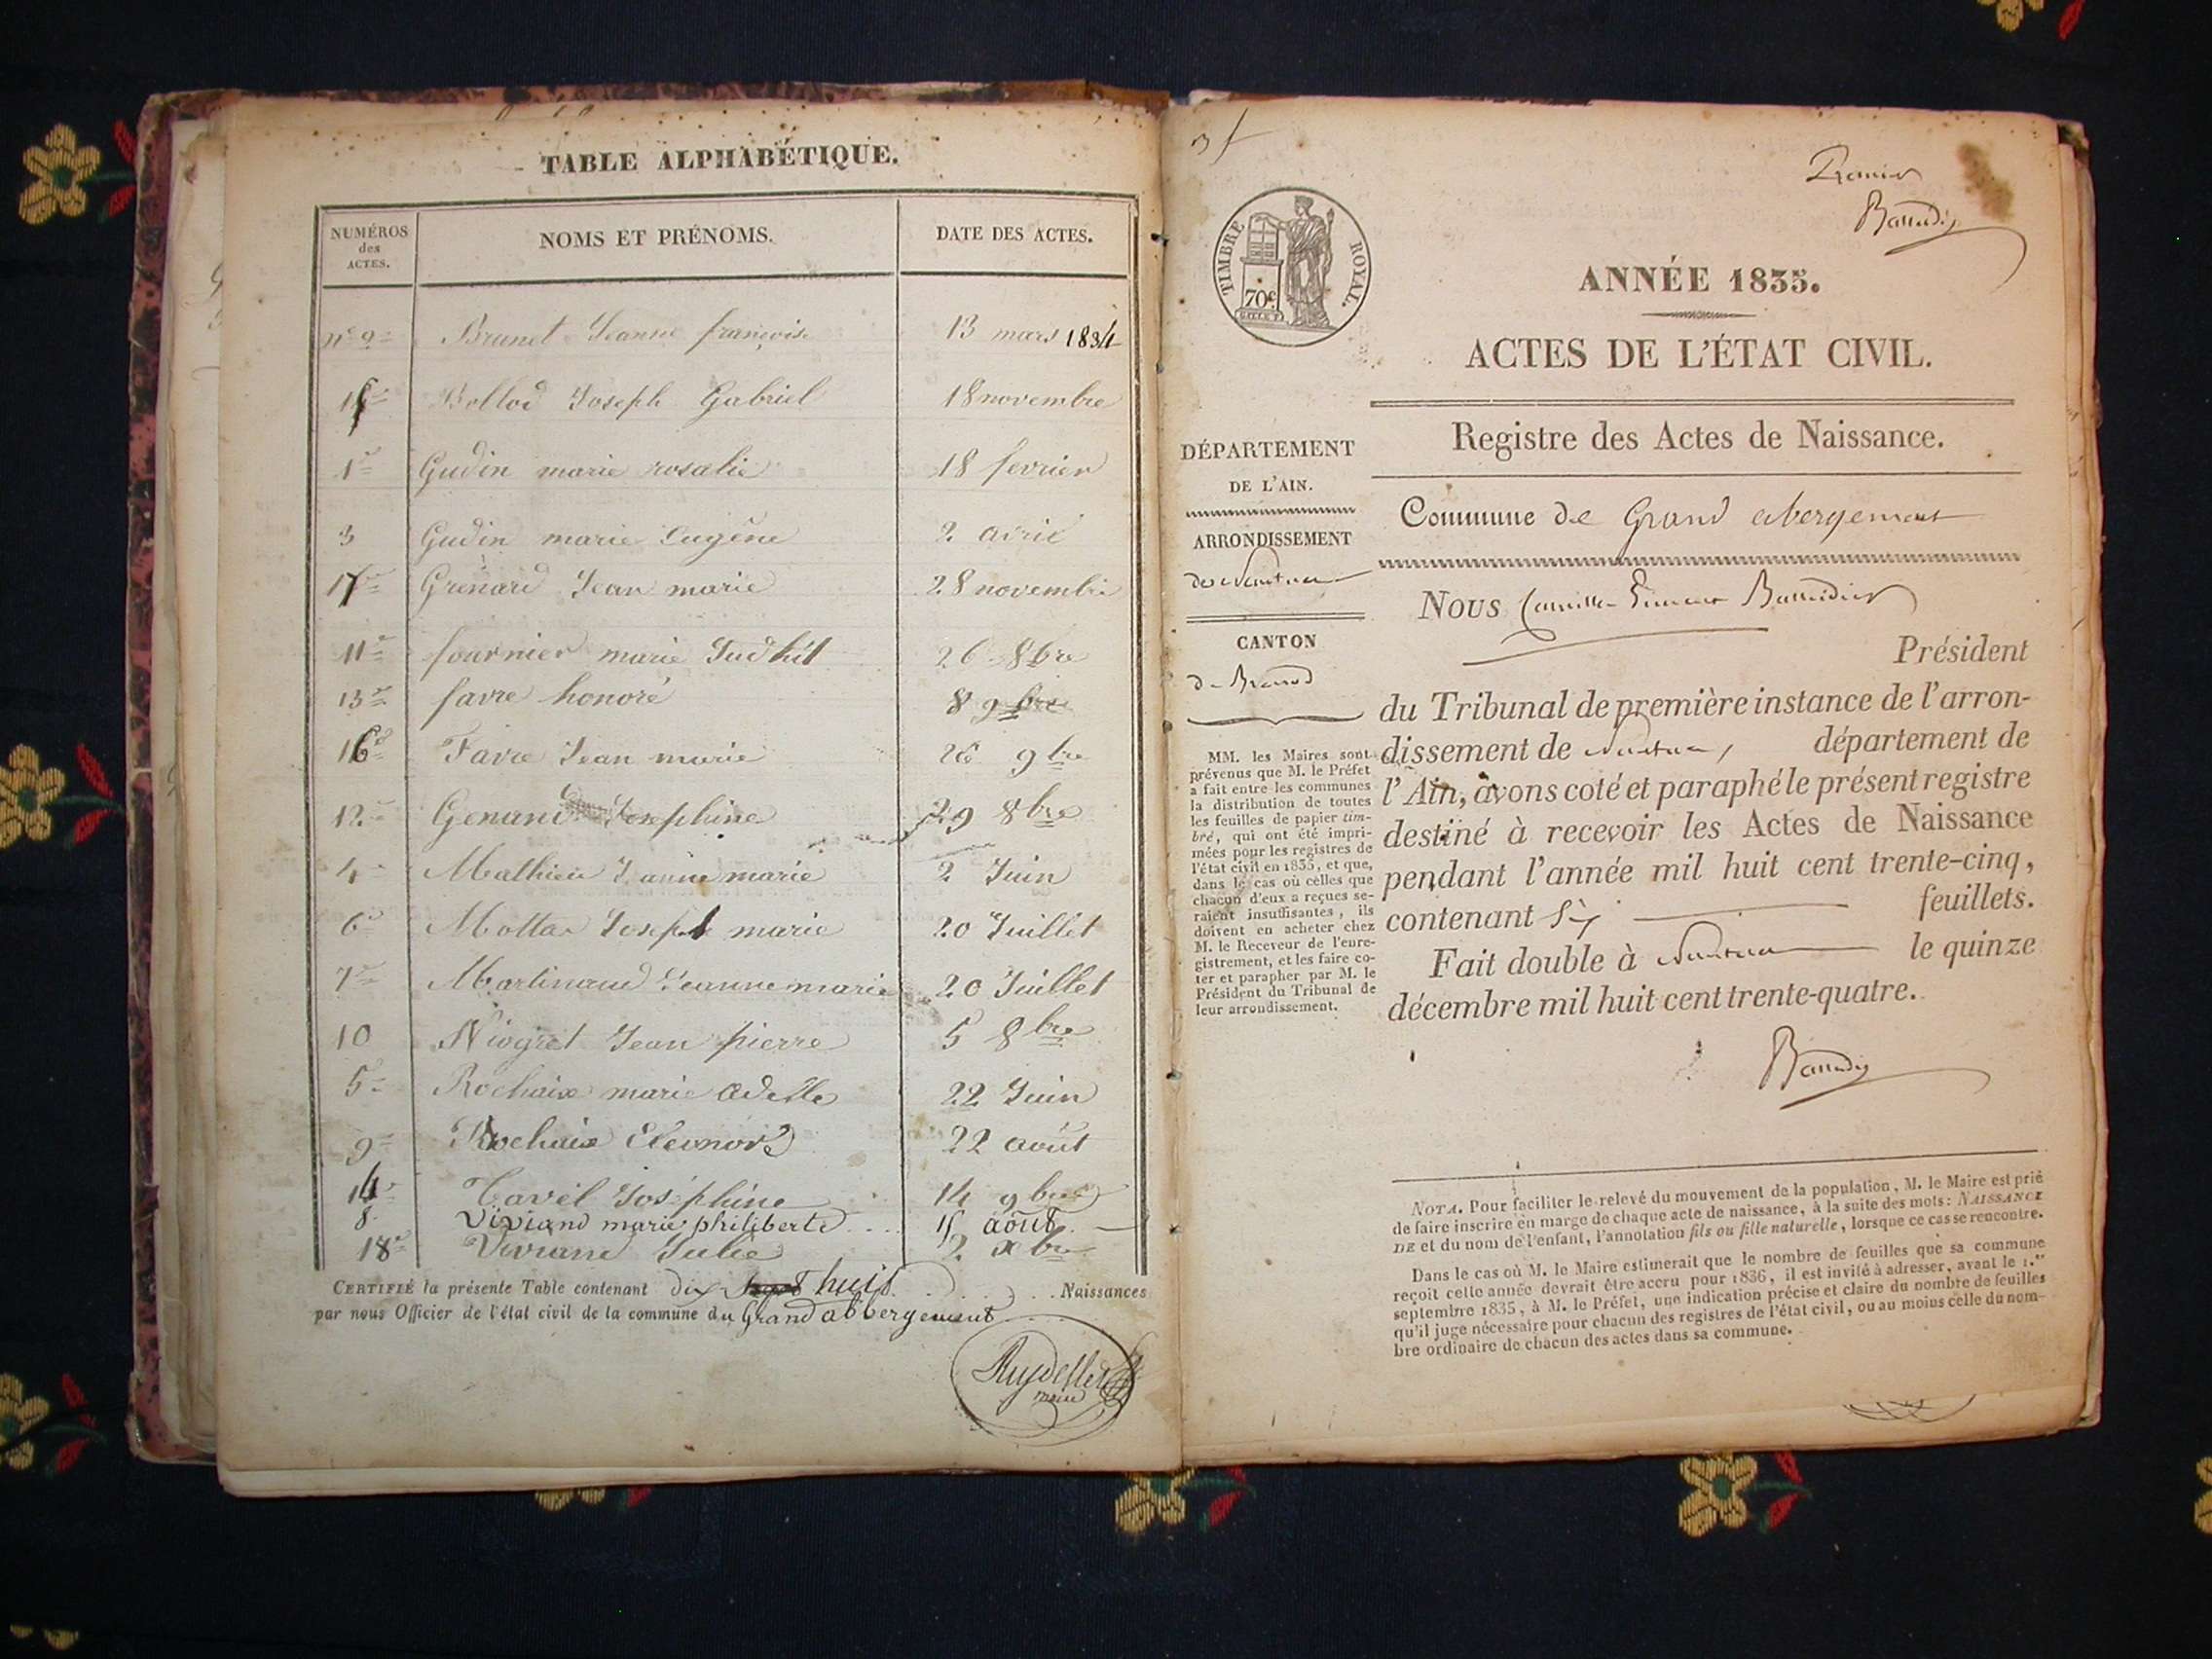 TABLE ALPHABÉTIQUE.
NUMÉROS des ACTES. NOMS ET PRÉNOMS. DATE DES ACTES.
n° 2 Brunet Jeanne françoise 13 mars 1834
15 Bollod Joseph Gabriel 18 novembre
1 Gudin marie rosalie 18 fevrier
3 Gudin marie Eugêne 2 avril
17 Grenard Jean marie 28 novembre
11 fournier marie Judhit 26 8bre
13 favre honoré 8 9bre
16 Favre Jean marie 26 9bre
12 Josephine 29 8bre
4 Mathieu Jeanne marie 2 Juin
6 Mottar Joseph marie 20 Juillet
7 Martinand Jeanne marie 20 Juillet
10 Niogret Jean pierre 5 8bre
5 Rochaix marie adelle 22 Juin
9 Rochaix Eleonore 22 août
14 Tavel Joséphine 14 9bre
8 Viviand marie philiberte 15 août
18 Julie 2 xbre
CERTIFIÉ la présente Table contenant dix sept huit Naissances
par nous Officier de l'état civil de la commune du Grand abbergement
maire
Premier
TIMBRE ROYAL.
70c
ANNÉE 1835.
ACTES DE L'ÉTAT CIVIL.
Registre des Actes de Naissance.
DÉPARTEMENT
DE L'AIN.
ARRONDISSEMENT
de Nantua
CANTON
de Brenod
MM. les Maires sont
prévenus que M. le Préfet
a fait entre les communes
la distribution de toutes
les feuilles de papier tim-
bré, qui ont été impri-
mées pour les registres de
l'état civil en 1835, et que,
dans le cas où celles que
chacun d'eux a reçues se-
raient insuffisantes, ils
doivent en acheter chez
M. le Receveur de l'enre-
gistrement, et les faire co-
ter et parapher par M. le
Président du Tribunal de
leur arrondissement.
Commune de Grand abergement
Nous Camille
Président
du Tribunal de première instance de l'arron-
dissement de Nantua, département de
l'Ain, avons coté et paraphé le présent registre
destiné à recevoir les Actes de Naissance
pendant l'année mil huit cent trente-cinq,
contenant six feuillets.
Fait double à Nantua le quinze
décembre mil huit cent trente-quatre.
NOTA. Pour faciliter le relevé du mouvement de la population, M. le Maire est prié
de faire inscrire en marge de chaque acte de naissance, à la suite des mots: NAISSANCE
DE et du nom de l'enfant, l'annotation fils ou fille naturelle, lorsque ce cas se rencontre.
Dans le cas où M. le Maire estimerait que le nombre de feuilles que sa commune
reçoit cette année devrait être accru pour 1836, il est invité à adresser, avant le 1.er
septembre 1835, à M. le Préfet, une indication précise et claire du nombre de feuilles
qu'il juge nécessaire pour chacun des registres de l'état civil, ou au moins celle du nom-
bre ordinaire de chacun des actes dans sa commune.